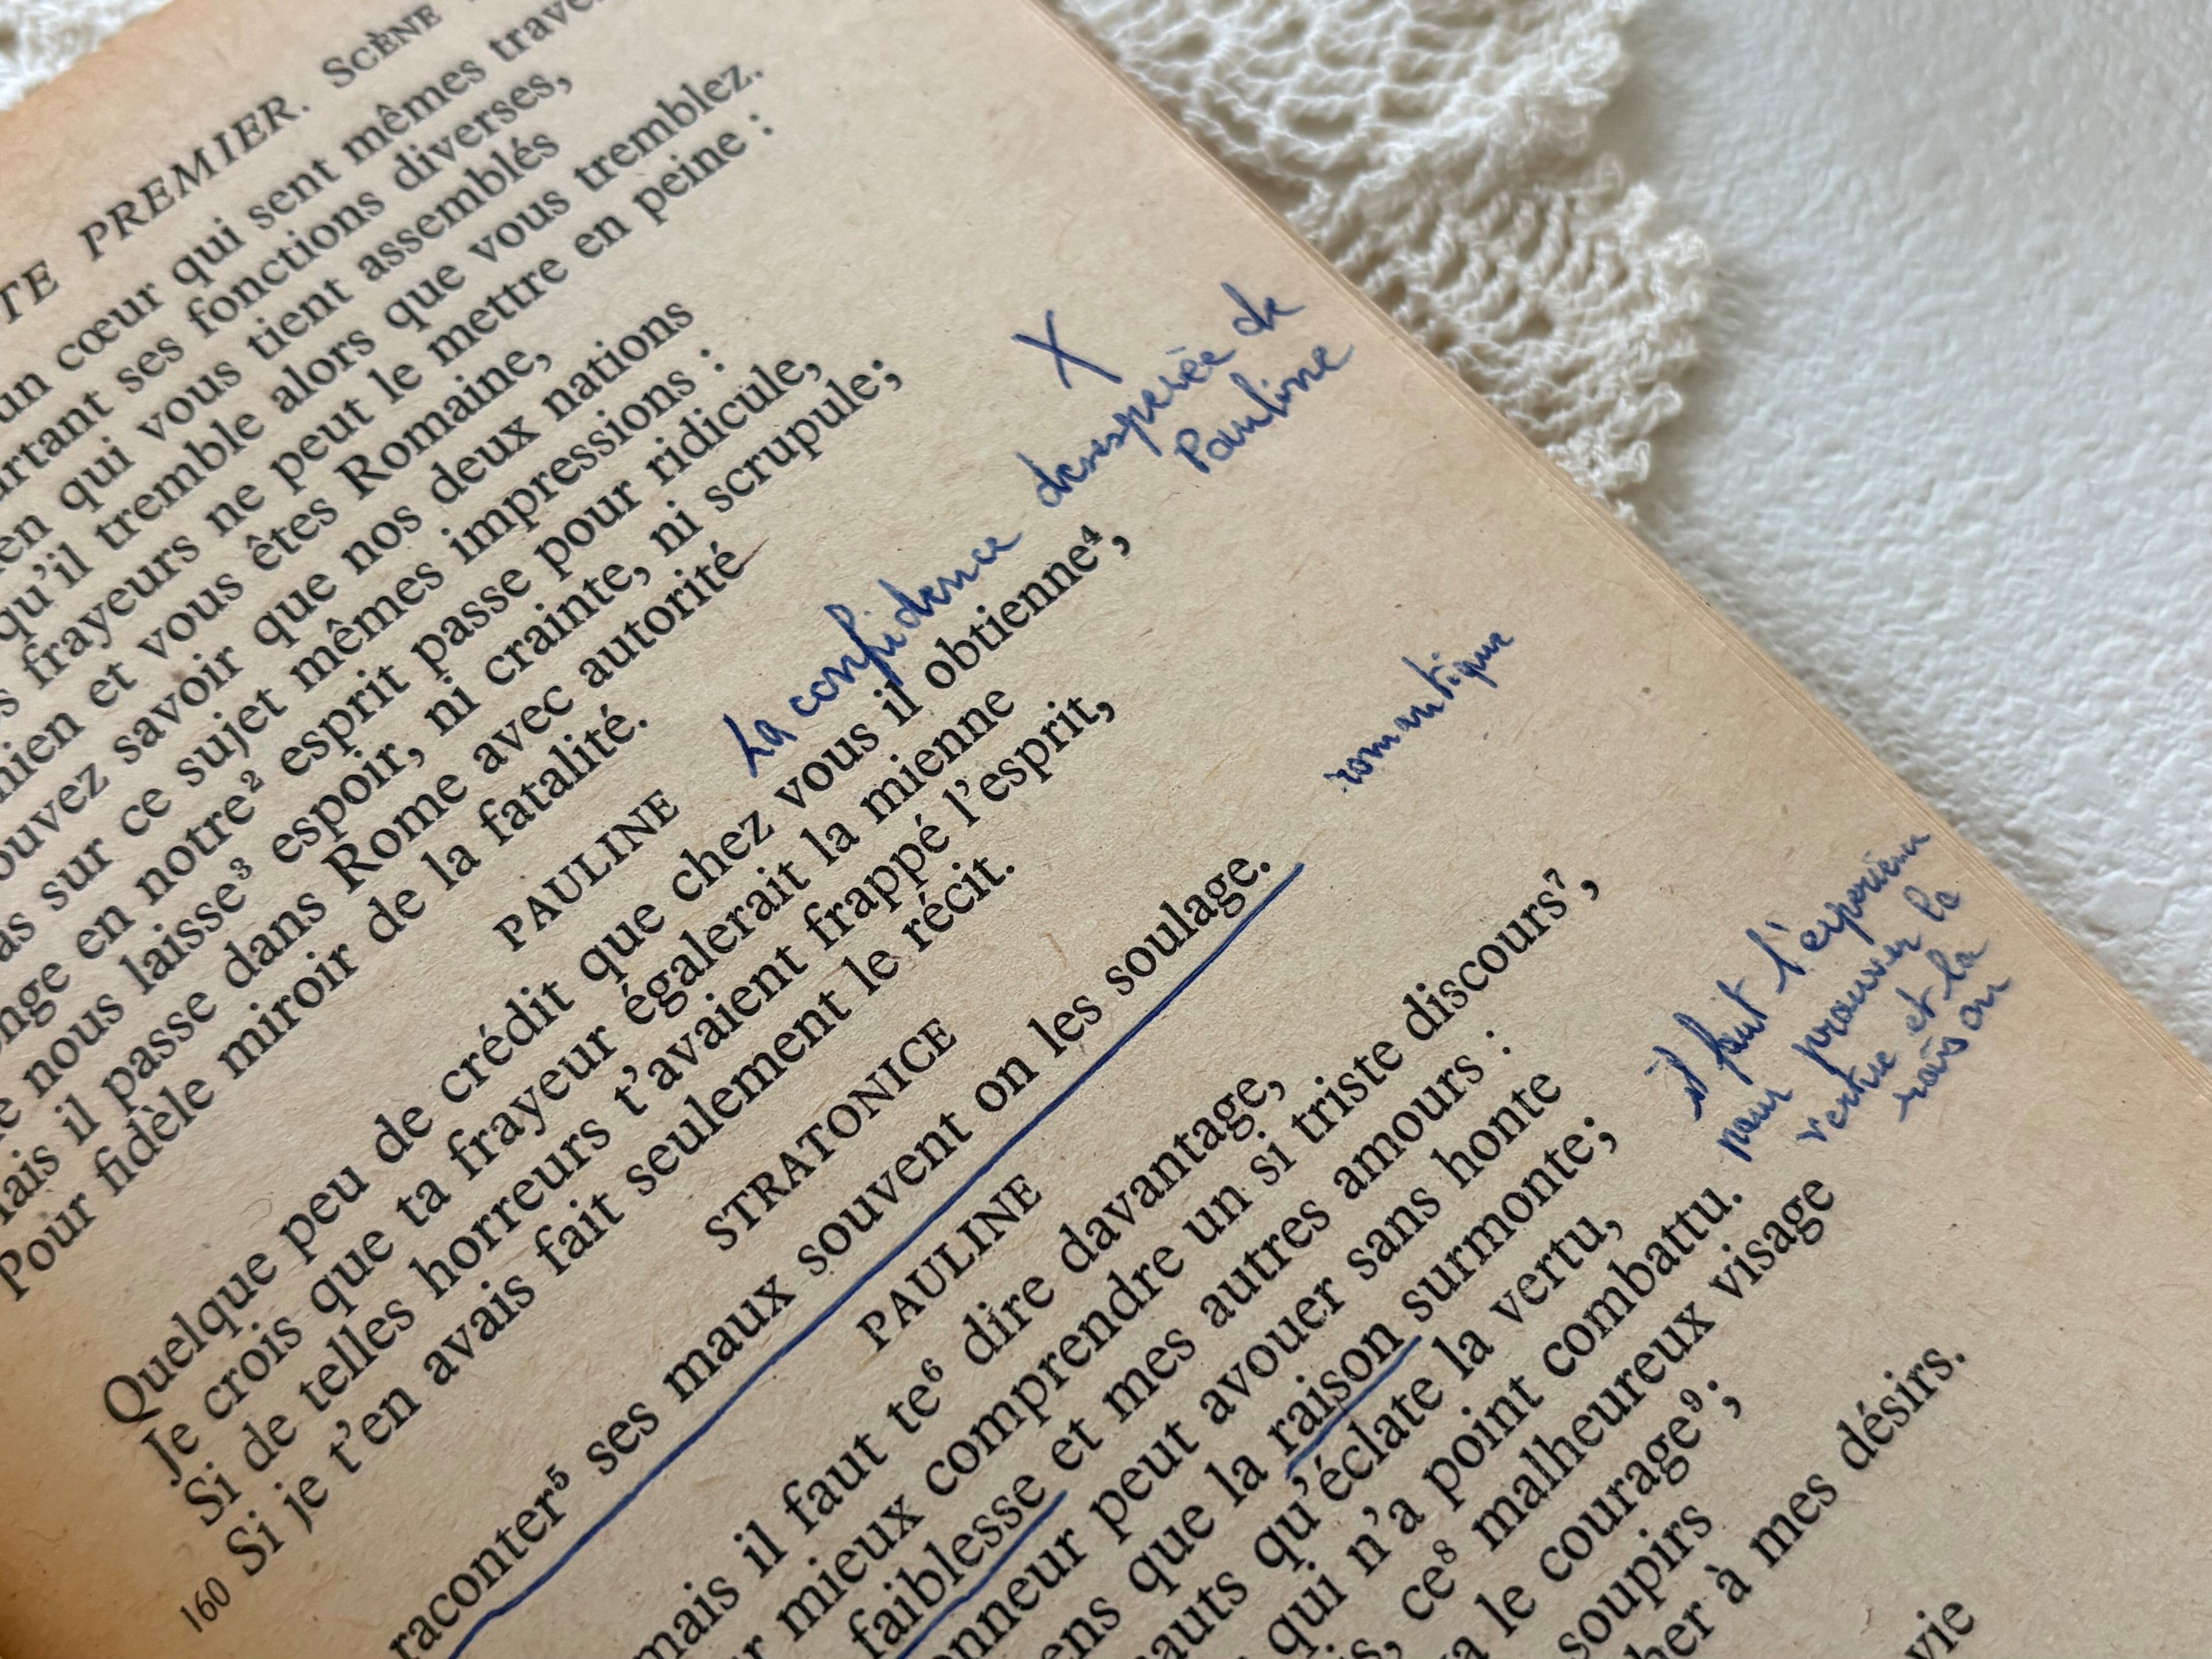 TE PREMIER. SCÈNE
un cœur qui sent mêmes
artant ses fonctions diverses,
en qui vous tient assemblés
qu'il tremble alors que vous tremblez.
frayeurs ne peut le mettre en peine :
nien et vous êtes Romaine,
ouvez savoir que nos deux nations
as sur ce sujet mêmes impressions :
nge en notre² esprit passe pour ridicule,
e nous laisse³ espoir, ni crainte, ni scrupule;
ais il passe dans Rome avec autorité
Pour fidèle miroir de la fatalité.
X
PAULINE La confidence desesperée de
Pauline
Quelque peu de crédit que chez vous il obtienne⁴,
Je crois que ta frayeur égalerait la mienne
Si de telles horreurs t'avaient frappé l'esprit,
160 Si je t'en avais fait seulement le récit.
romantique
STRATONICE
raconter⁵ ses maux souvent on les soulage.
PAULINE
mais il faut te⁶ dire davantage,
r mieux comprendre un si triste discours⁷,
faiblesse et mes autres amours :
onneur peut avouer sans honte
ens que la raison surmonte;
auts qu'éclate la vertu,
qui n'a point combattu.
il faut l'experience
pour prouver la
vertue et la
raison
is, ce⁸ malheureux visage
a le courage⁹;
soupirs
her à mes désirs.
vie